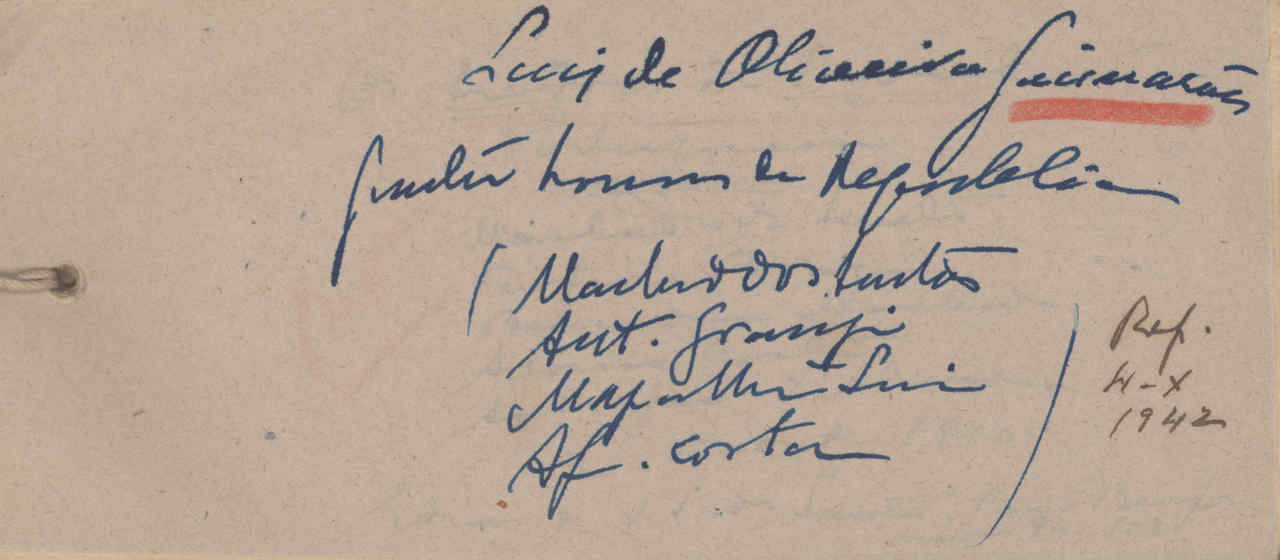 Luis de Oliveira Guimarães
quatro homens da Republica
(Machado dos Santos
Ant. Granjo
Magalhães Lima
Af. Costa)
Rep.
4-X
1942